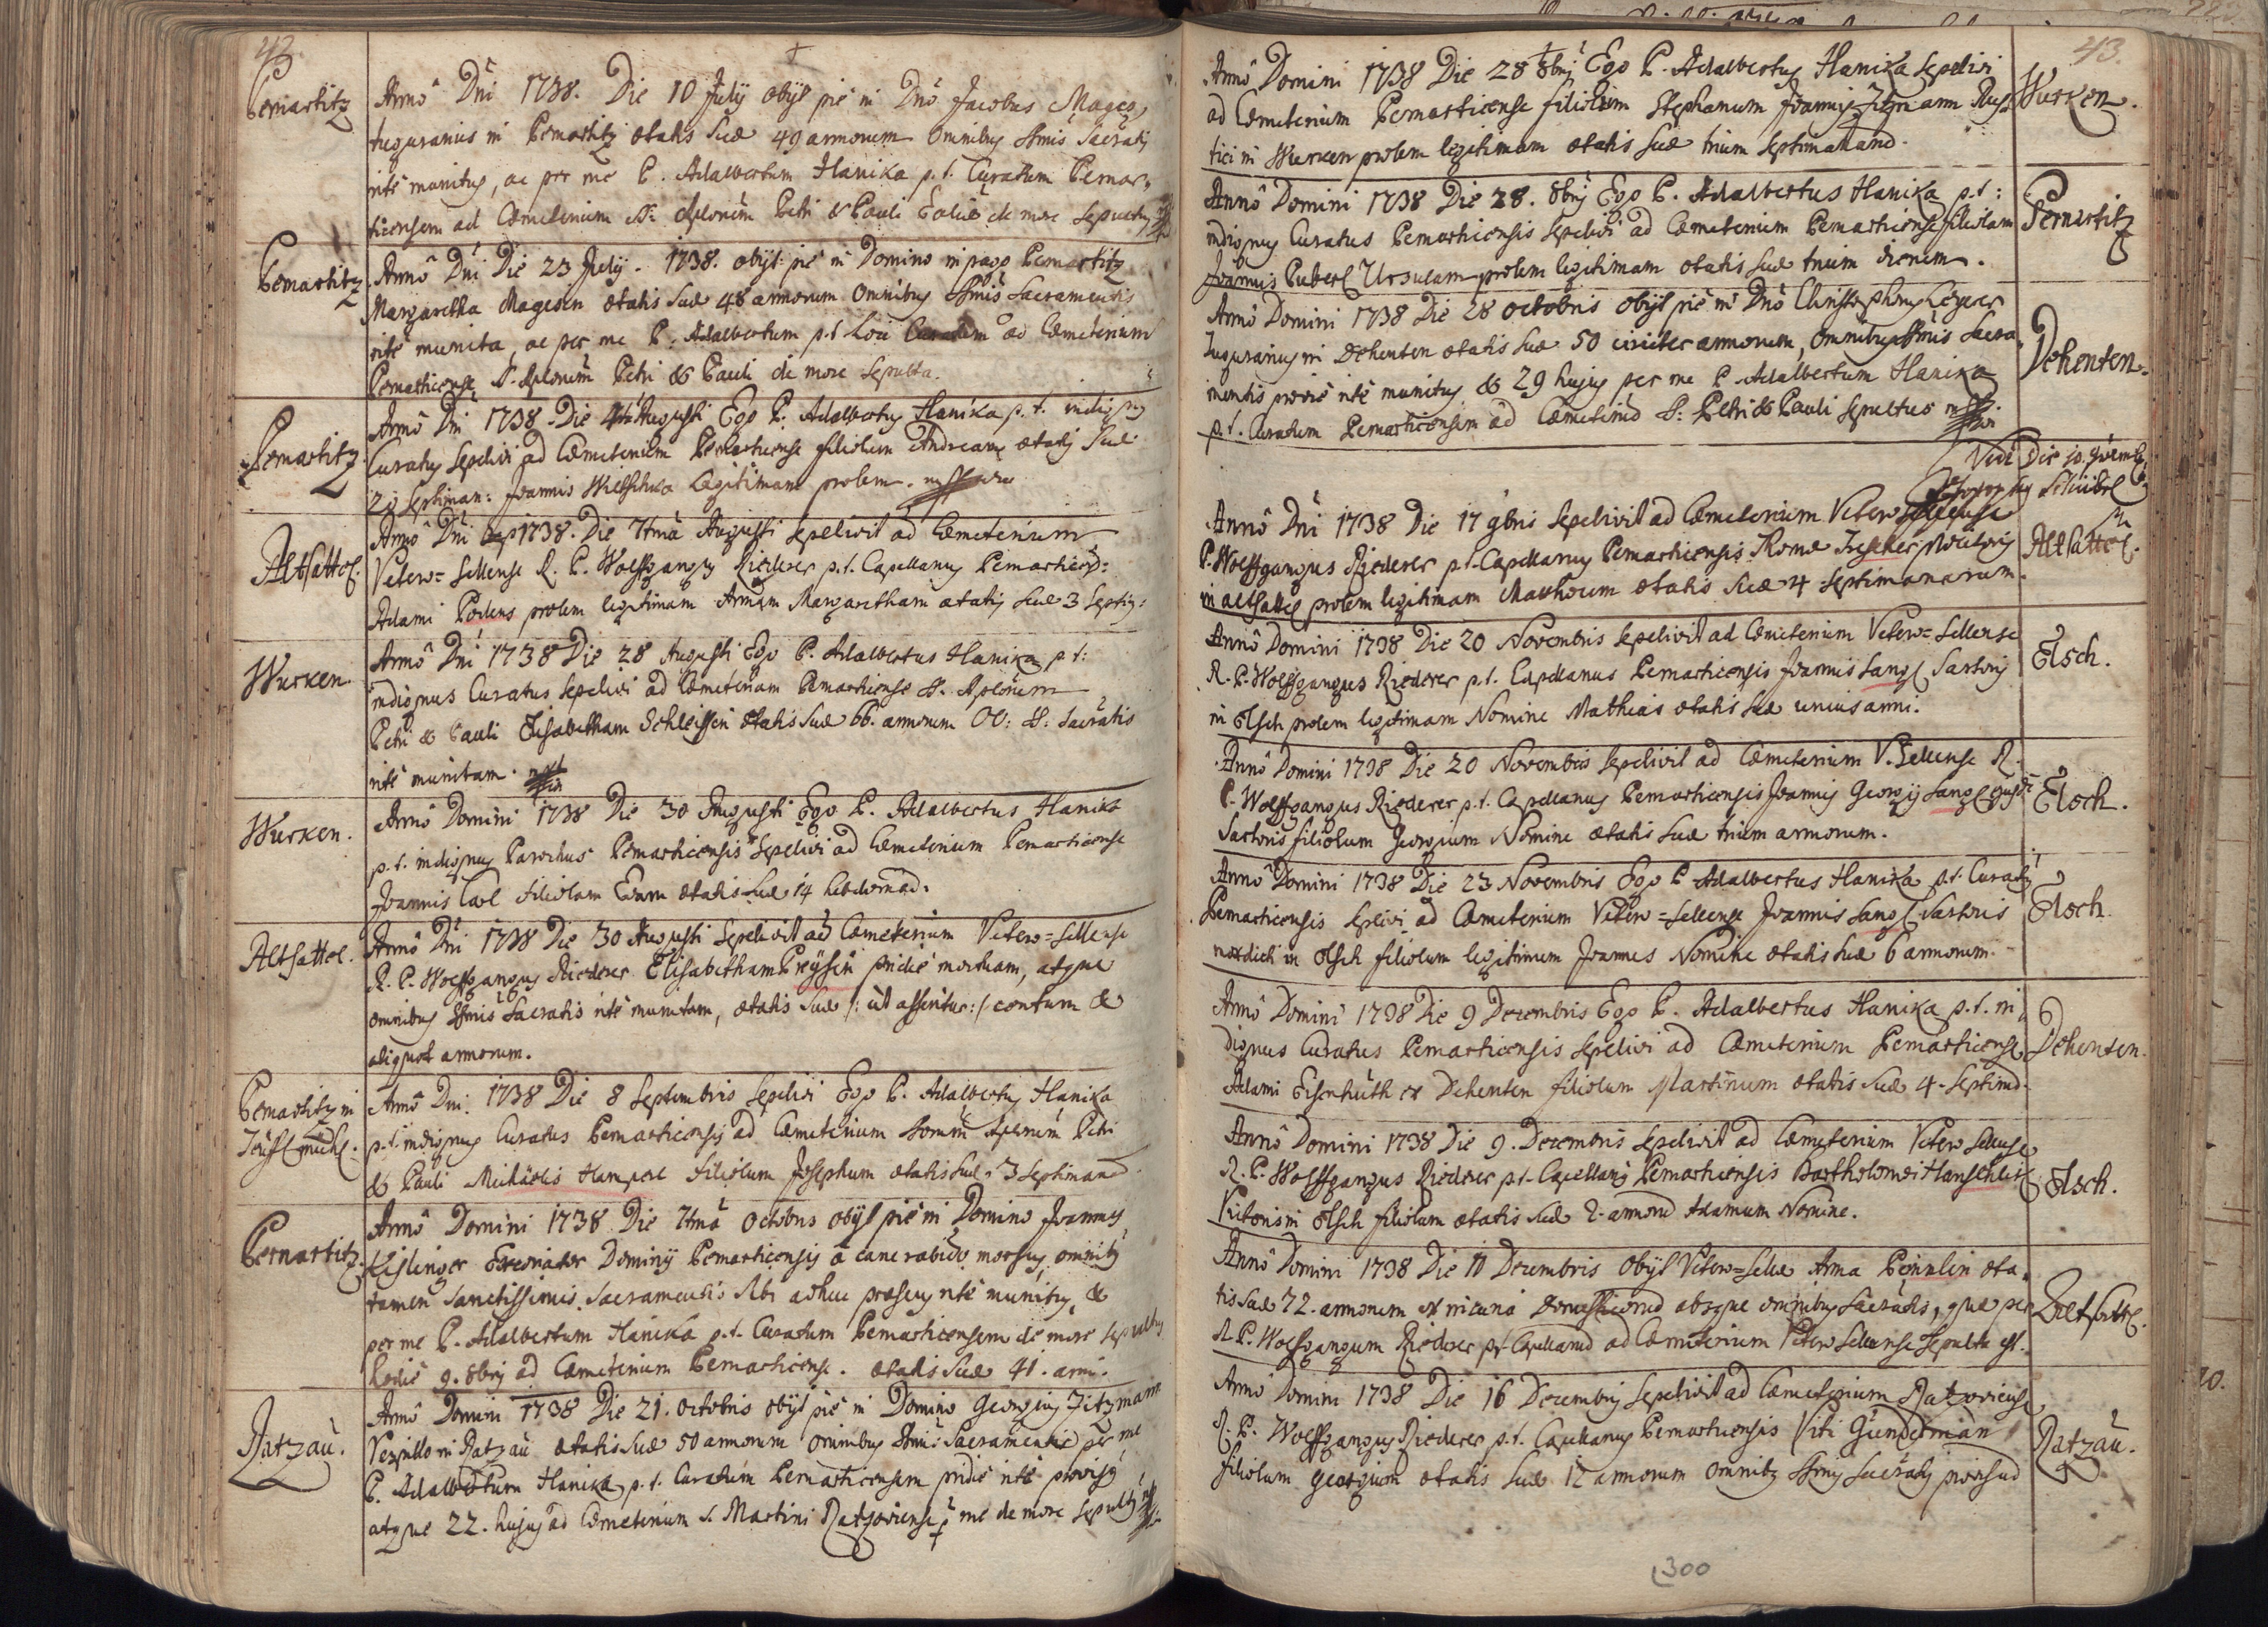 42.
Pernartitz
Anno Dni 1738. Die 10 July obijt pie in Dno Jacobus Mages,
tuguranius in Pernartitz ætatis suæ 49 annorum omnibus Ssmis Sacratis
rite munitus, ac per me P. Adalbertum Hanika p.t. Curatum Pernar-
ticensem ad Cæmeterium SS. Aplorum Petri & Pauli de more sepultus
Pernartitz
Anno Dni Die 23 July. 1738. obijt pie in Domino in pago Pernartitz
Margaretha Magesin ætatis suæ 48 annorum omnibus Ssmis Sacramentis
rite munita, ac per me P. Adalbertum p.t. Loci Curatum ad Cæmeterium
Pernarticense SS. Aplorum Petri & Pauli de more sepulta.
Pernartitz
Anno Dni 1738. Die Augusti Ego P. Adalbertus Hanika p.t. indignus
Curatus sepelivi ad Cæmeterium Pernarticense filiolum Andream ætatis suæ
septiman: Joannis legitimam prolem.
Altsattel.
Anno Dni 1738. Die 7tma Augusti sepelivit ad Cæmeterium
Vetero-Sellense R. P. Wolffgangus Riederer p.t. Capellanus Pernarticens:
Adami Podens prolem legitimam Annam Margaretham ætatis suæ 3 septi:
Wurken.
Anno Dni 1738 Die 28 Augusti Ego P. Adalbertus Hanika p.t:
indignus Curatus sepelivi ad Cæmeterium Pernarticense SS. Aplorum
Petri & Pauli Elisabetham Schleissin ætatis suæ 66. annorum OO: SS: Sacratis
rite munitam.
Wurken.
Anno Domini 1738 Die 30 Augusti Ego P. Adalbertus Hanika
p.t. indignus Parochus Pernarticensis sepelivi ad Cæmeterium Pernarticense
Joannis filiolam Evam ætatis suæ 14 hebdomad.
Altsattel.
Anno Dni 1738 Die 30 Augusti sepelivit ad Cæmeterium Vetero=Sellense
R. P. Wolffgangus Riederer Elisabetham Preysin pridie mortuam, atque
omnibus Ssmis Sacratis rite munitam, ætatis suæ /: ut asseritur :/ centum &
aliquot annorum.
Pernartitz in
Anno Dni. 1738 Die 8 Septembris sepelivi Ego P. Adalbertus Hanika
p.t. indignus Curatus Pernarticensis ad Cæmeterium Aplorum Petri
& Pauli Michaelis Hamperl filiolum Josephum ætatis suæ 3 septimana
Pernartitz.
Anno Domini 1738 Die 7tma Octobris obijt pie in Domino Joannes
Kislinger Dominij Pernarticensis a cane rabido morsus, omnibus
tamen sanctissimis Sacramentis sibi adhuc præsens rite munitus, &
per me P. Adalbertum Hanika p.t. Curatum Pernarticensem de more sepultus
hodie 9. 8bris ad Cæmeterium Pernarticense. ætatis suæ 41. anni.
Ratzau.
Anno Domini 1738 Die 21. Octobris obijt pie in Domino Georgius Zitzmann
Vespillo in Ratzau ætatis suæ 50 annorum omnibus Ssmis Sacramentis per me
P. Adalbertum Hanika p.t. Curatum Pernarticensem pridie rite provisus
atque 22. hujus ad Cæmeterium S. Martini Ratzoviense p me de more sepultus
43.
Anno Domini 1738 Die 28 8bris Ego P. Adalbertus Hanika sepelivi
ad Cæmeterium Pernarticense filiolum Stephanum Joannis Zitzmann Rus-
tici in Wurken prolem legitimam ætatis suæ trium septimanarum.
Wurken.
Anno Domini 1738 Die 28. 8bris Ego P. Adalbertus Hanika p.t:
indignus Curatus Pernarticensis sepelivi ad Cæmeterium Pernarticense filiolam
Joannis Puberl Ursulam prolem legitimam ætatis suæ trium dierum.
Pernartitz
Anno Domini 1738 Die 28 octobris obijt pie in Dno Christophorus
Tuguranius in Dehenten ætatis suæ 50 circiter annorum, omnibus Ssmis Sacra-
mentis provie rite munitus, & 29 hujus per me P. Adalbertum Hanika
p.t. Curatum Pernarticensem ad Cæmeteriu SS: Petri & Pauli sepultus
Dehenten.
Vidi Die 10. 9vemb.
Anno Dni 1738 Die 17 9bris sepelivit ad Cæmeterium Vetero Sellense
P. Wolffgangus Riederer p.t. Capellanus Pernarticensis Thomæ
in Altsattel prolem legitimam Matthæum ætatis suæ 4 septimanarum.
Altsattel.
Anno Domini 1738 Die 20 Novembris sepelivit ad Cæmeterium Vetero=Sellense
R. P. Wolffgangus Riederer p.t. Capellanus Pernarticensis Joannis Langl Sartoris
in Elsch prolem legitimam Nomine Mathias ætatis suæ unius anni.
Elsch.
Anno Domini 1738 Die 20 Novembris sepelivit ad Cæmeterium V. Sellense R.
P. Wolffgangus Riederer p.t. Capellanus Pernarticensis Joannis Georgij Langl
Sartoris filiolum Georgium Nomine ætatis suæ trium annorum.
Elsch.
Anno Domini 1738 Die 23 Novembris Ego P Adalbertus Hanika p.t. Curatus
Pernarticensis sepelivi ad Cæmeterium Vetero=Sellense Joannis Langl Sartoris
in Elsch filiolum legitimum Joannes Nomine ætatis suæ 6 annorum.
Elsch.
Anno Domini 1738 Die 9 Decembris Ego P. Adalbertus Hanika p.t. in-
dignus Curatus Pernarticensis sepelivi ad Cæmeterium Pernarticense
Adami Eisenhuth ex Dehenten filiolum Martinum ætatis suæ 4 septima.
Dehenten.
Anno Domini 1738 Die 9. Decembris sepelivit ad Cæmeterium Vetero Sellense
R. P. Wolffgangus Riederer p.t. Capellanus Pernarticensis Bartholomæi
in Elsch filiolum ætatis suæ 2. annoru Adamum Nomine.
Elsch.
Anno Domini 1738 Die 11 Decembris obijt Vetero=Sellæ Anna æta-
tis suæ 72. annorum absque omnibus Sacratis, quæ per
R. P. Wolffgangum Riederer p.t. Capellanu ad Cæmeterium Vetero Sellense sepulta est.
Altsattel.
Anno Domini 1738 Die 16 Decembris sepelivit ad Cæmeterium Ratzoviense
R. P. Wolffgangus Riederer p.t. Capellanus Pernarticensis Viti Gunderman
filiolum Georgium ætatis suæ 12 annorum omnibus Ssmis Sacratis provisum
Ratzau.
300